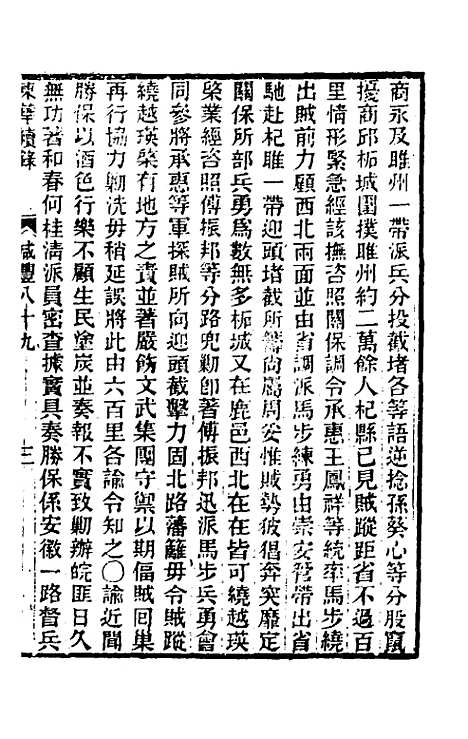 商永及睢州一帶派兵分投截堵各等語逆捻孫葵心等分股竄
擾商邱柘城圍撲睢州約二萬餘人杞縣已見賊蹤距省不過百
里情形緊急經該撫咨照關保調令承惠王鳳祥等統率馬步繞
出賊前力顧西北兩面並由省調派馬步練勇由崇安管帶出省
馳赴杞睢一帶迎頭堵截所籌尚屬周妥惟賊勢披猖奔突靡定
關保所部兵勇為數無多柘城又在鹿邑西北在在皆可繞越瑛
棨業經咨照傅振邦等分路兜勦卽著傅振邦迅派馬步兵勇會
同參將承惠等軍探賊所向迎頭截擊力固北路藩籬毋令賊蹤
繞越瑛棨有地方之責並著嚴飭文武集團守禦以期偪賊回巢
再行協力勦洗毋稍延誤將此由六百里各諭令知之〇諭近聞
勝保以酒色行樂不顧生民塗炭並奏報不實致勦辦皖匪日久
無功著和春何桂清派員密查據實具奏勝保係安徽一路督兵
東華續錄 咸豐八十九 三